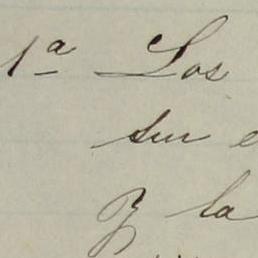 1ª Los
sur e
y la